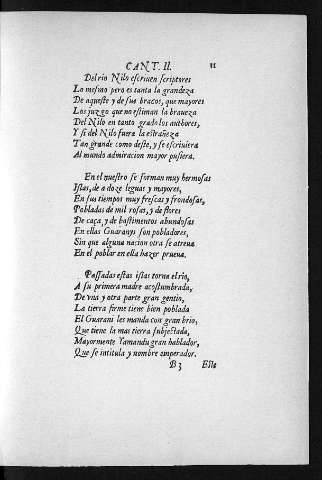 CANT. II. 11
Del rio Nilo escriuen scriptores
Lo mesmo pero es tanta la grandeza
De aqueste y de sus braços, que mayores
Los juzgo que no estiman la braueza
Del Nilo en tanto grado los authores,
Y si del Nilo fuera la estrañeza
Tan grande como deste, y se escriuiera
Al mundo admiracion mayor pusiera.
En el nuestro se forman muy hermosas
Islas, de a doze leguas y mayores,
En sus tiempos muy frescas y frondosas,
Pobladas de mil rosas, y de flores
De caça, y de bastimentos abundosas
En ellas Guaranys son pobladores,
Sin que alguna nacion otra se atreua
En el poblar en ella hazer prueua.
Passadas estas islas torna el rio,
A su primera madre acostumbrada,
De vna y otra parte gran gentio,
La tierra firme tiene bien poblada
El Guarani les manda con gran brio,
Que tiene la mas tierra subjectada,
Mayormente Yamandu gran hablador,
Que se intitula y nombre emperador.
B 3 Este